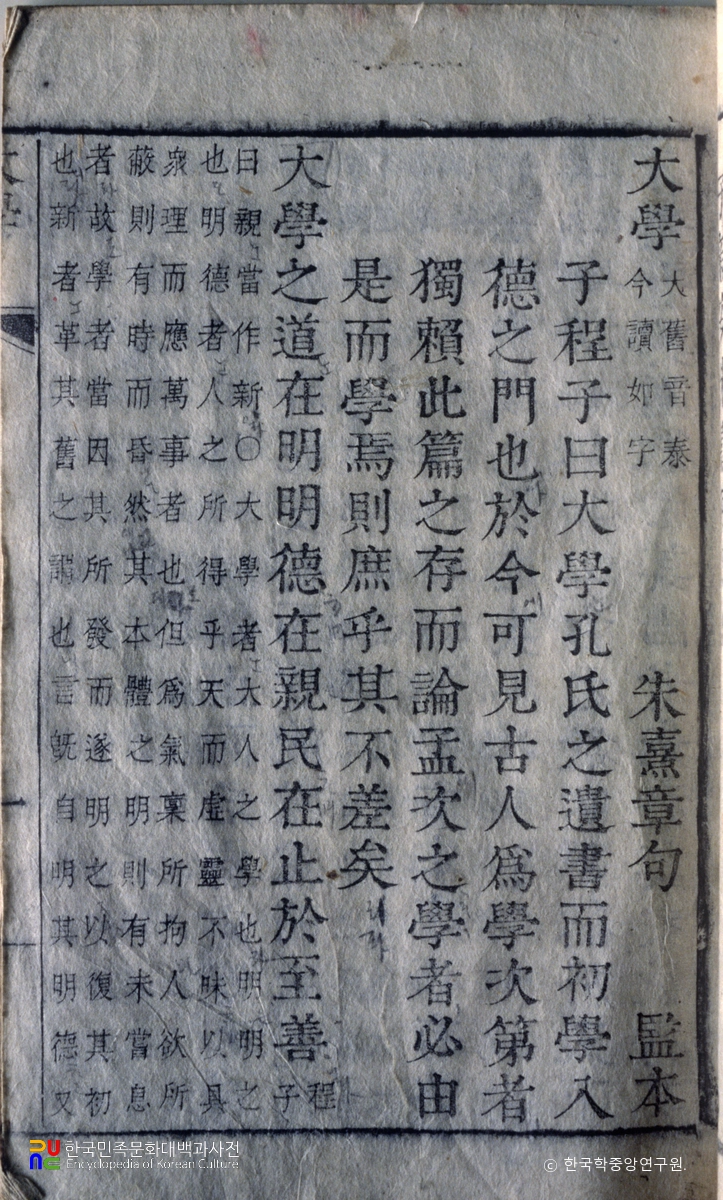 大學 大舊音泰 今讀如字 朱熹章句 監本
子程子曰大學孔氏之遺書而初學入
德之門也於今可見古人爲學次第者
獨賴此篇之存而論孟次之學者必由
是而學焉則庶乎其不差矣 니라
大學之道在明明德在親民在止於至善 程子
曰親當作新○大學者大人之學也明明之
也明德者人之所得乎天而虛靈不昧以具
衆理而應萬事者也但爲氣稟所拘人欲所
蔽則有時而昏然其本體之明則有未嘗息
者故學者當因其所發而遂明之以復其初
也新者革其舊之謂也言旣自明其明德又
한국민족문화대백과사전
Encyclopedia of Korean Culture
© 한국학중앙연구원.